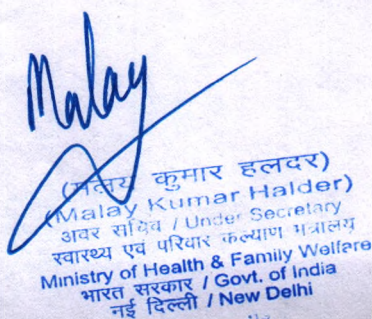 Malay
(मलय कुमार हलदर)
(Malay Kumar Halder)
अवर सचिव / Under Secretary
स्वास्थ्य एवं परिवार कल्याण मंत्रालय
Ministry of Health & Family Welfare
भारत सरकार / Govt. of India
नई दिल्ली / New Delhi